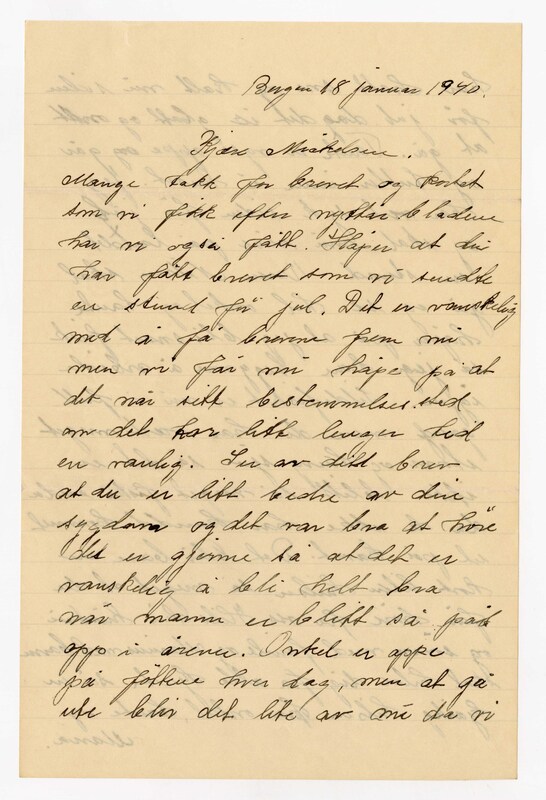 Bergen 18 januar 1940.
Kjære Mickelsen.
Mange takk for brevet og kortet
som vi fikk efter nyttår bladene
har vi også fått. Håper at du
har fått brevet som vi sendte
en stund få jul. Det er vanskelig
med å få brevene frem nu
men vi får nu håpe på at
det når sitt bestemmelses.sted
om det har litt lenger tid
en vanlig. Ser av ditt brev
at du er litt bedre av din
sygdom og det var bra at höre
det er gjerne så at det er
vanskelig å bli helt bra
når mann er blitt så pås
opp i årene. Onkel er oppe
på föttene hver dag, men at gå
ute blir det lite av nu da vi